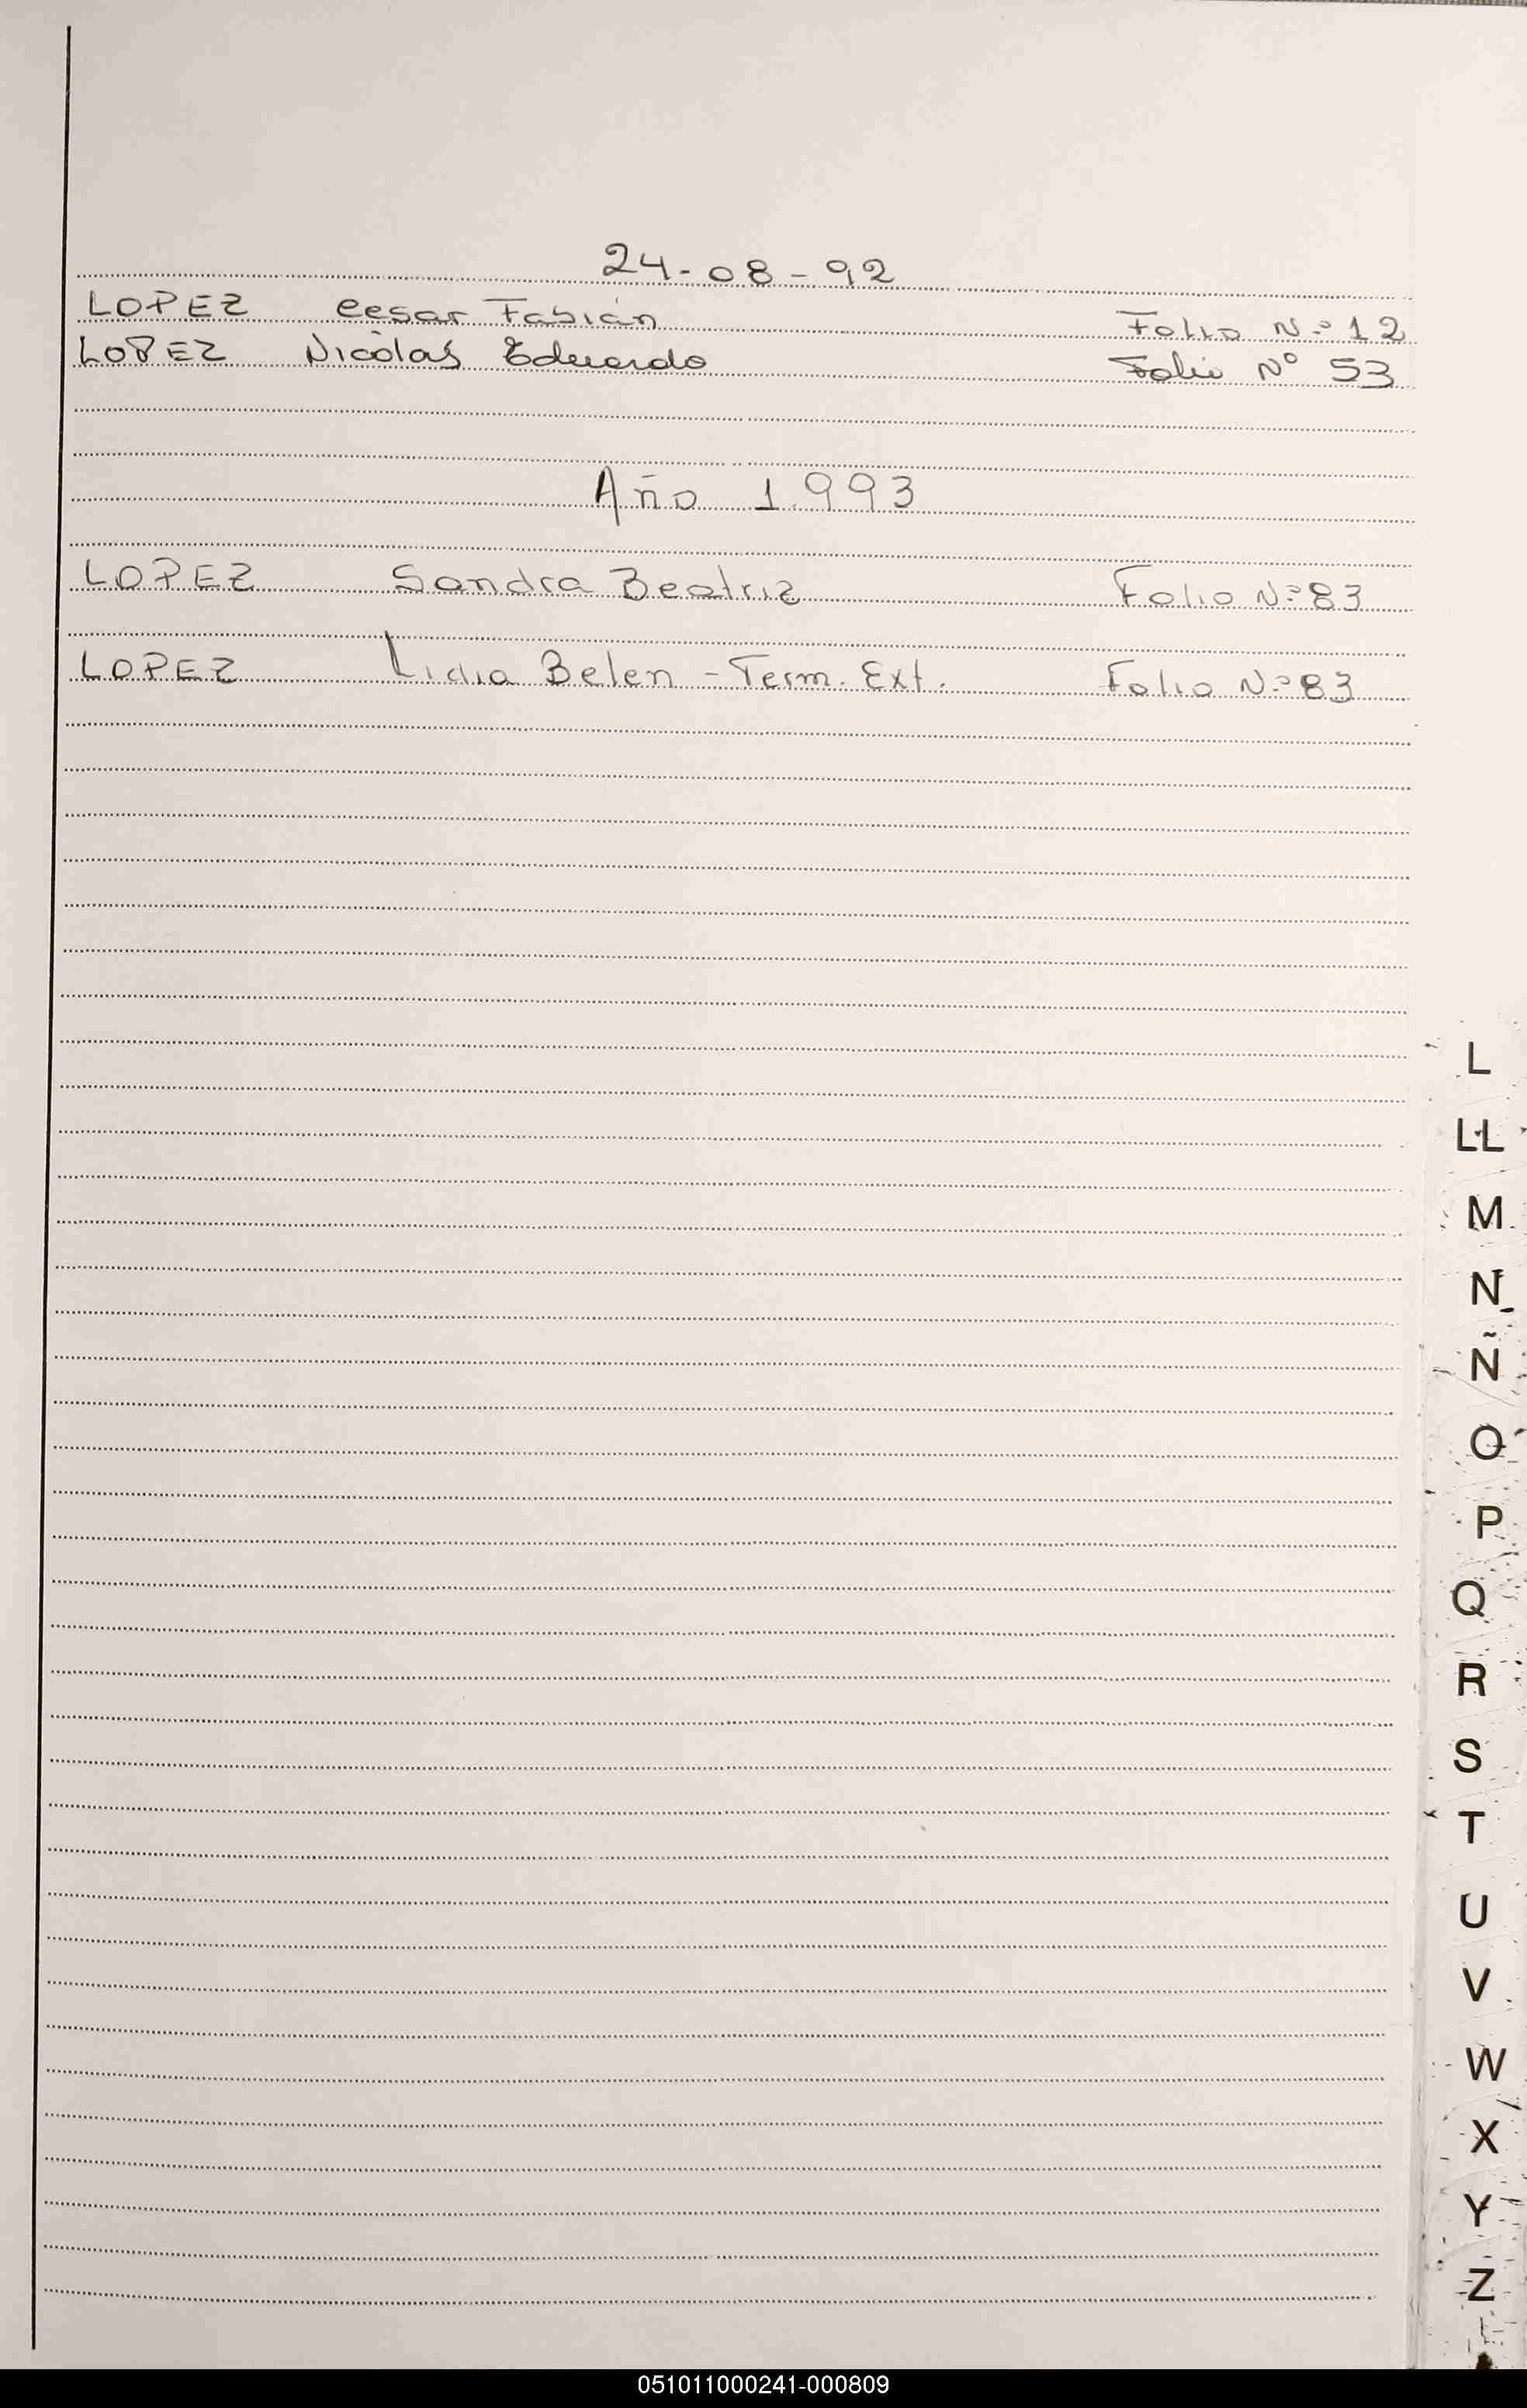 24-08-92
LOPEZ Cesar Fabián Folio N.º 12
LOPEZ Nicolas Eduardo Folio Nº 53
Año 1.993
LOPEZ Sandra Beatriz Folio N.º 83
LOPEZ Lidia Belen - Term. Ext. Folio N.º 83
L
LL
M
N
Ñ
O
P
Q
R
S
T
U
V
W
X
Y
Z
051011000241-000809